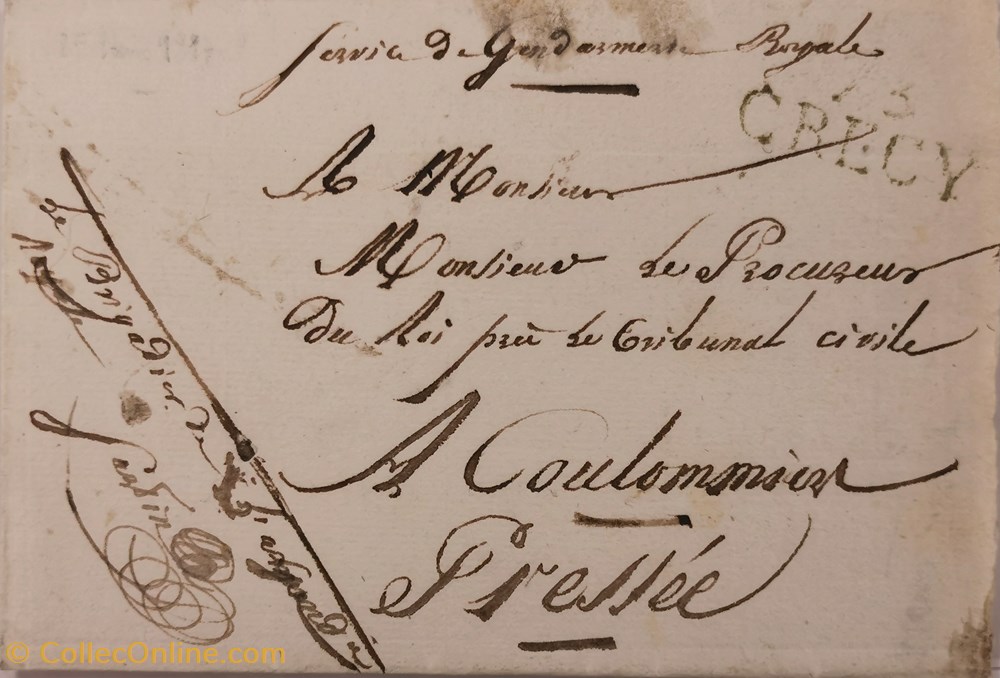 Service de Gendarmerie Royale
73
CRECY
A Monsieur
Monsieur Le Procureur
Du Roi près Le Tribunal civile
A Coulommier
Pressée
Le Brigadier de
Jardin
© CollecOnline.com